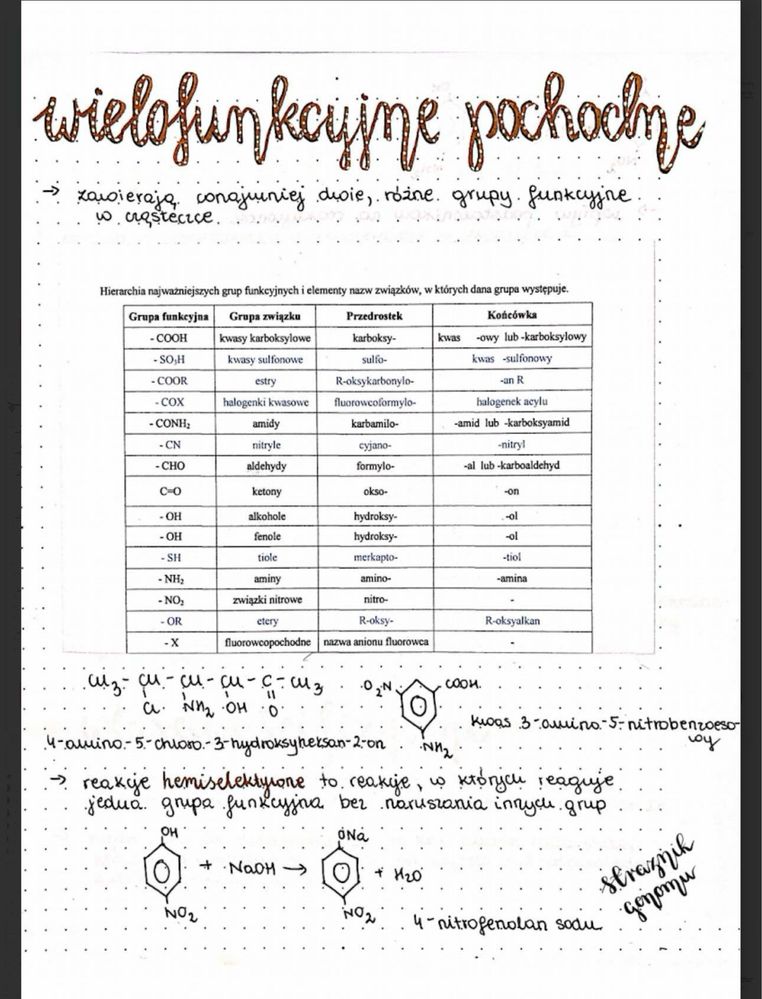 wielofunkcyjne pochodne
→ zawierają conajmniej dwie, różne grupy funkcyjne
w cząsteczce.
Hierarchia najważniejszych grup funkcyjnych i elementy nazw związków, w których dana grupa występuje.
Grupa funkcyjna Grupa związku Przedrostek Końcówka
- COOH kwasy karboksylowe karboksy- kwas -owy lub -karboksylowy
- SO₃H kwasy sulfonowe sulfo- kwas -sulfonowy
- COOR estry R-oksykarbonylo- -an R
- COX halogenki kwasowe fluorowcoformylo- halogenek acylu
- CONH₂ amidy karbamilo- -amid lub -karboksyamid
- CN nitryle cyjano- -nitryl
- CHO aldehydy formylo- -al lub -karboaldehyd
C=O ketony okso- -on
- OH alkohole hydroksy- -ol
- OH fenole hydroksy- -ol
- SH tiole merkapto- -tiol
- NH₂ aminy amino- -amina
- NO₂ związki nitrowe nitro- -
- OR etery R-oksy- R-oksyalkan
- X fluorowcopochodne nazwa anionu fluorowca -
CH₃ - CH - CH - CH - C - CH₃ O₂N COOH
Cl NH₂ OH O
kwas 3-amino-5-nitrobenzoeso-
wy
4-amino-5-chloro-3-hydroksyheksan-2-on NH₂
→ reakcje hemiselektywne to reakcje, w których reaguje
jedna grupa funkcyjna bez naruszania innych grup
OH ONa
+ NaOH → + H₂O
NO₂ NO₂ 4-nitrofenolan sodu
strażnik
gonomu